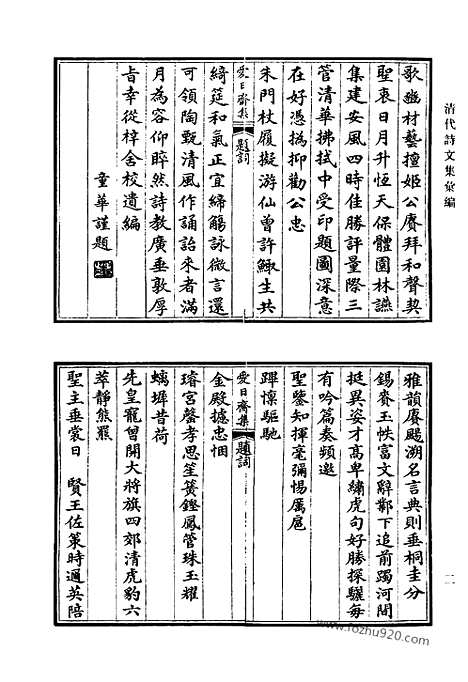 清代詩文集彙編
歌材藝擅姬公賡拜和聲契
聖衷日月升恆天保體園林讌
集建安風四時佳勝評量際三
管清華拂拭中受印題圖深意
在好憑撝抑勸公忠
朱門杖履擬游仙曾許鯫生共
愛日齋集 題詞
綺筵和氣正宜締觴詠微言還
可領陶甄清風作誦詒來者滿
月為容仰睟然詩教廣垂敦厚
旨幸從梓舍校遺編
童華謹題
二
雅韻賡颺溯名言典則垂桐圭分
錫賚玉帙富文辭鄴下追前躅河間
挺異姿才高卑繡虎句好勝探驪每
有吟篇奏頻邀
聖鑒知揮毫彌惕厲扈
蹕懍驅馳
愛日齋集 題詞
金殿攄忠悃
璿宮罄孝思笙簧鏗鳳管珠玉耀
螭墀昔荷
先皇寵曾開大將旗四郊清虎豹六
萃靜熊羆
聖主垂裳日 賢王佐策時英陪
www.fozhu920.com